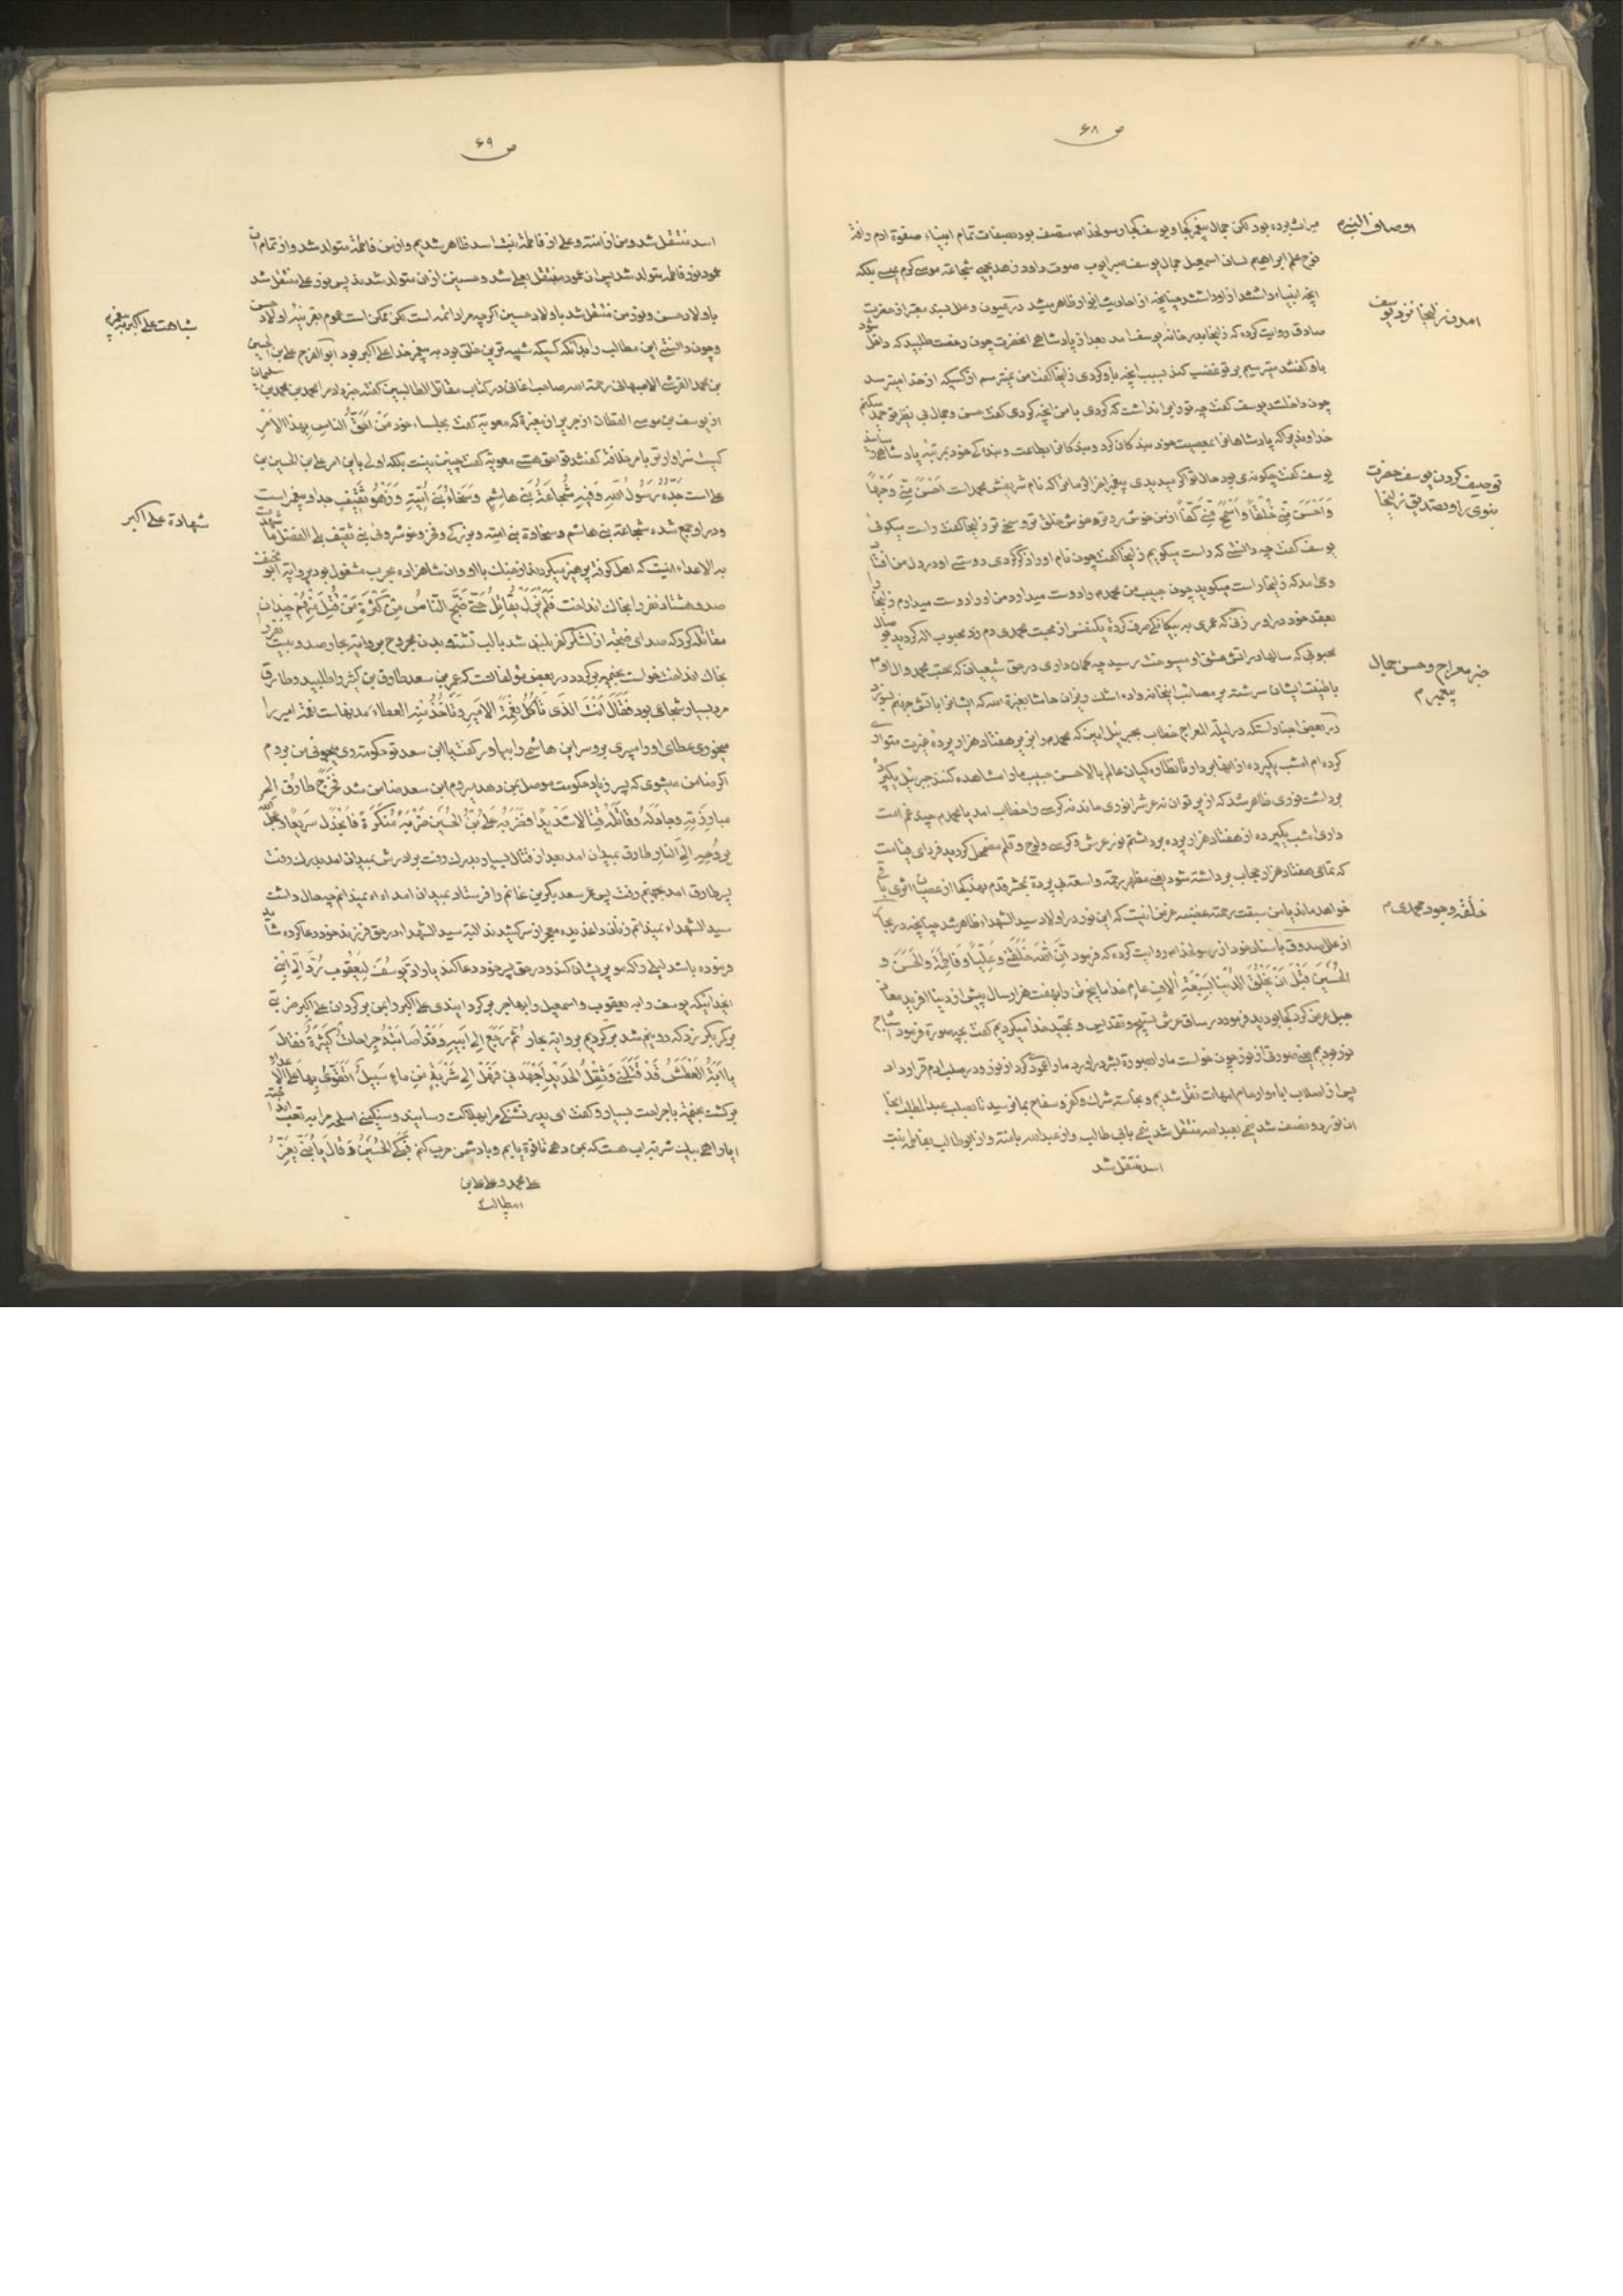 ص ۶۸
اوصاف النبی م
میراث برده بود لکن جمال پیغمبر کجا و یوسف کجا رسولخدا ص متصف بود بصفات تمام انبیاء صفوة ادم رافة
نوح علم ابراهیم لسان اسمعیل جمال یوسف صبر ایوب صوت داود زهد یحیی شجاعة موسی کرم عیسی بلکه
انچه انبیاء داشتند از او داشتند چنانچه از احادیث انوار ظاهر میشد در عیون و علل بسند معتبر از حضرت
امدن زلیخا نزد یوسف
صادق روایت کرده که زلیخا بدر خانه یوسف امد بعد از پادشاهی انحضرت چون رخصت طلبید که داخل شود
باو گفتند میترسیم بر تو غضب کند بسبب انچه باو کردی زلیخا گفت من نمیترسم از کسیکه از خدا میترسد
چون داخلشد یوسف گفت چه تو را بر ان داشت که کردی با من انچه کردی گفت حسن و جمال بی نظیر تو حمد میکنم
خداوندیرا که پادشاهانرا بمعصیت خود بندکان کرد و بندکانرا بطاعت و بندکی خود بمرتبه پادشاهی رسانید
توصیف کردن یوسف حضرت
نبوی را و تصدیق زلیخا
یوسف گفت چکونه می بود حال تو اکر میدیدی پیغمبر اخر الزمانرا که نام شریفش محمد است احسن منی وجها
و احسن منی خلقا و اسمح منی کفا از من خوش رو تر و خوش خلق تر و سخی تر زلیخا گفت راست میگوئی
یوسف گفت چه دانستی که راست میکویم زلیخا گفت چون نام او را ذکر کردی دوستی او در دل من افتاد
وحی امد که زلیخا راست میکوید چون حبیب من محمد م را دوست میدارد من او را دوست میدارم زلیخا را
بعقد خود در اور زنی که عمری به بیکانکی صرف کرده یکنفس از محبت محمدی دم زد محبوب اله کردید
خبر معراج و حسن جمال
پیغمبر م
محبوبی که سالها در اتش عشق او میسوخت رسید چه کمان داری در حق شیعیان که بمحبت محمد و ال او
با طینت ایشان سرشته بر مصائب انخانه واده اشک ریزان حاشا بغیرة الله که ایشانرا باتش جهنم بسوزد
در بعض اخبار است که در لیلة المعراج خطاب بجبرئیل امین که محمد مرا بر هفتاد هزار پرده غیرت متواری
کرده ام امشب یکپرده از انها بردار تا نظاره کیان عالم بالا حسن حبیب ما را مشاهده کنند جبرئیل یکپرده
برداشت نوری ظاهر شد که از پرتو ان نه عرش را نوری ماند نه کرسی را خطاب امد یا محمد م چه غم امت
داری امشب یکپرده از هفتاد هزار پرده برداشتم نور عرش و کرسی و لوح و قلم مضمحل کردید فردای قیامت
که تمام هفتاد هزار حجاب برداشته شود
خلقة وجود محمدی م
خواهد ماند یا من سبقت رحمته غضبه غرض اینست که این نور در اولاد سید الشهداء ظاهر شد چنانچه در بحار
از علل صدوق باسناد خود از رسولخدا ص روایت کرده که فرمود ان الله خلقنی و علیا و فاطمة و الحسن و
الحسین قبل ان یخلق الدنیا بسبعة الاف عام خدا ما پنج تن را بهفت هزار سال پیش از دنیا افرید معاذ
جبل عرض کرد کجا بودید فرمود در ساق عرش تسبیح و تقدیس و تمجید خدا میکردیم گفت بچه صورة فرمود اشباح
نور بودیم یعنی صورتی از نور چون خواست ما را بصورة بشر در اورد ما را عمود کرد از نور و در صلب ادم قرار داد
پس از اصلاب اباء و ارحام امهات نقل شدیم و نجاسة شرک و کفر و سفاح بما نرسید تا بصلب عبد المطلب انجا
ان نور دو نصف شد نیمی بعبد الله منتقل شد نیمی بابی طالب و از عبد الله بامنة و از ابو طالب بفاطمه بنت
اسد منتقل شد
ص ۶۹
اسد منتقل شد و من از امنة و علی از فاطمة بنت اسد ظاهر شدیم و از من فاطمة متولد شد و از تمام ان
عمود نور فاطمه متولد شد پس ان عمود منتقل بعلی شد و حسنین از ان متولد شدند پس نور علی منتقل شد
شباهت علی اکبر به پیغمبر
باولاد حسن و نور من منتقل شد باولاد حسین اکرچه مراد ائمه است لکن ممکن است عموم بقرینه اولاد حسن
و چون دانستی این مطالب را بدانکه کسیکه شبیه ترین خلق بود به پیغمبر خدا علی اکبر بود ابو الفرج علی بن الحسین
بن محمد القرشی الاصبهانی رحمة الله صاحب اغانی در کتاب مقاتل الطالبیین گفته خبر داد مرا محمد بن محمد بن سلیمان
از یوسف بن موسی القطان از جریر از مغیرة که معویه گفت بجلساء خود من احق الناس بهذا الامر
کیست سزاوارتر بامر خلافة گفتند تو احق هستی معویه گفت چنین نیست بلکه اولی باین امر علی بن الحسین بن
علی است جده رسول الله و فیه شجاعة بنی هاشم و سخاء بنی امیة و زهو ثقیف جد او پیغمبر است
شهادة علی اکبر
و در او جمع شده شجاعة بنی هاشم و سخاوة بنی امیه و بزرکی و فخر و خوشروئی بنی ثقیف بلی الفضل ما شهدت
به الاعداء اینست که اهل کوفه پرهیز میکردند از جنک با او و ان شاهزاده بحرب مشغول بود بروایة ابو مخنف
صد و هشتاد نفر را بخاک انداخت فلم یزل یقاتل حتی ضج الناس من کثرة من قتل منهم چندان
مقاتله کرد که صدای ضجه از لشکر کفر بلند شد با لب تشنه و بدن مجروح بروایة بحار صد و بیست نفر را
بخاک انداخت خواست بخیمه برکردد در بعض مؤلفات که عمر بن سعد طارق بن کثیر را طلبید و طارق
مرد بسیار شجاعی بود فقال انت الذی تأکل نعمة الامیر و تأخذ منه العطاء مدتهاست نعمة امیر را
میخوری عطای او را میبری برو سر این هاشمی را بیاور گفت یا ابن سعد تو حکومة ری میخواهی من بروم
اکر ضامن میشوی که پسر زیاد حکومت موصل بمن دهد میروم ابن سعد ضامن شد فخرج طارق الی
مبارزته و جادله و قاتله قتالا شدیدا فضربه علی بن الحسین ضربة منکرة فانجدل سریعا
بروحه الی النار طارق بمیدان امد بعد از قتال بسیار بدرک رفت برادرش بمیدان امد بدرک رفت
پسر طارق امد بجهنم رفت پس عمر سعد بکر بن غانم را فرستاد بمیدان امد اه اه نمیدانم چه حال داشت
سید الشهداء نمیدانم زنان داغدیده معجر از سر کشیدند البته سید الشهداء در حق فرزند خود دعا کرده شاید
فرموده باشد لیلی را که مو پریشان کند و در حق پسر خود دعا کند یا راد یوسف لیعقوب رد الی ابنی
ایخدائیکه یوسف را به یعقوب و اسمعیل را بهاجر برکرداندی علی اکبر را بمن برکردان علی اکبر ضربة
بر کمر بکر زد که دو نیم شد برکردیم بروایة بحار ثم رجع الی ابیه و قد اصابته جراحات کثیرة فقال
یا ابة العطش قد قتلنی و ثقل الحدید اجهدنی فهل الی شربة من ماء سبیل اتقوی بها علی الاعداء
برکشت بخیمه با جراحت بسیار و گفت ای پدر تشنکی مرا بهلاکت رسانید و سنکینی اسلحه مرا به تعب انداخته
ایا راهی بیک شربة اب هست که بمن دهی تا قوة یابم و با دشمن حرب کنم فبکی الحسین و قال یا بنی یعز
علی محمد و علی علی بن
ابیطالب